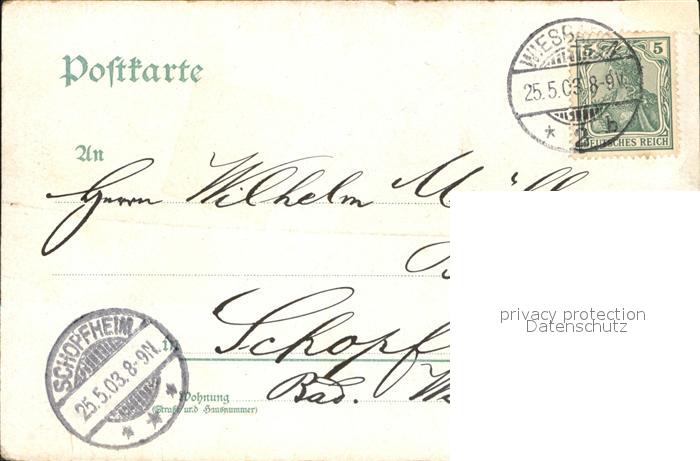 Postkarte
WIESBADEN
25.5.03. 8-9V.
* 2 b
5 5
DEUTSCHES REICH
An
Herrn Wilhelm
privacy protection
Datenschutz
SCHOPFHEIM
25.5.03. 8-9N.
* * *
In Schopf
Wohnung
(Straße und Hausnummer)
Bad.